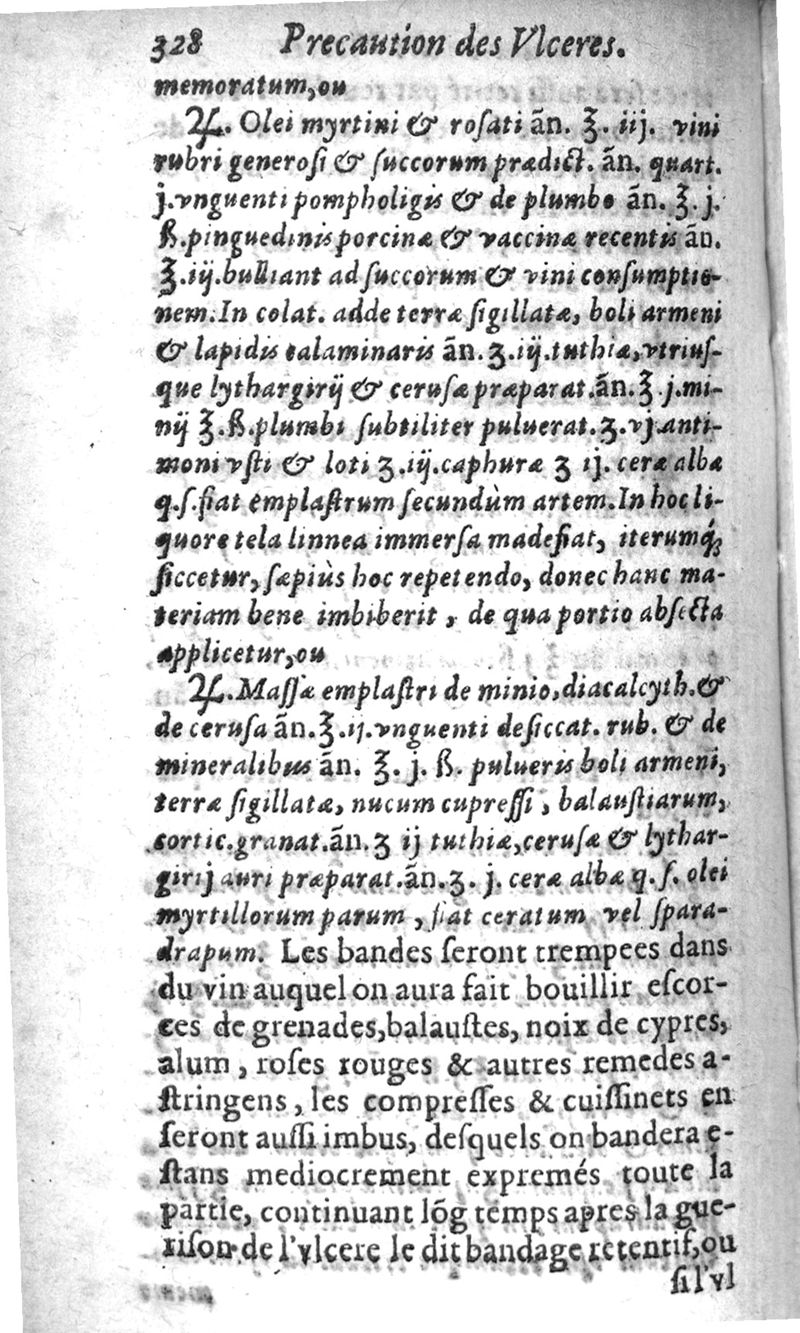 328 Precaution des Vlceres.
memoratum, ou
♃. Olei myrtini & rosati ãn. ℥. iij. vini
rubri generosi & succorum prædict. ãn. quart.
j. vnguenti pompholigis & de plumbo ãn. ℥. j.
ß. pinguedinis porcinæ & vaccinæ recentis ãn.
℥. iÿ. bulliant ad succorum & vini consumptio-
nem. In colat. adde terræ sigillatæ, boli armeni
& lapidis calaminaris ãn. ʒ. iÿ. tuthiæ, vtrius-
que lythargirÿ & cerusæ præparat. ãn. ℥. j. mi-
nÿ ℥. ß. plumbi subtiliter puluerat. ʒ. vj. anti-
moni vsti & loti ʒ. iÿ. caphuræ ʒ ij. ceræ albæ
q. s. fiat emplastrum secundùm artem. In hoc li-
quore tela linnea immersa madefiat, iterumq́;
siccetur, sæpiùs hoc repetendo, donec hanc ma-
teriam bene imbiberit, de qua portio absecta
applicetur, ou
♃. Massæ emplastri de minio, diacalcyth. &
de cerusa ãn. ℥. ij. vnguenti desiccat. rub. & de
mineralibus ãn. ℥. j. ß. pulueris boli armeni,
terræ sigillatæ, nucum cupressi, balaustiarum,
cortic. granat. ãn. ʒ ij tuthiæ, cerusæ & lythar-
girij auri præparat. ãn. ʒ. j. ceræ albæ q. s. olei
myrtillorum parum, fiat ceratum vel spara-
drapum. Les bandes seront trempees dans
du vin auquel on aura fait bouillir escor-
ces de grenades, balaustes, noix de cypres,
alum, roses rouges & autres remedes a-
stringens, les compresses & cuissinets en
seront aussi imbus, desquels on bandera e-
stans mediocrement expremés toute la
partie, continuant lõg temps apres la gue-
rison de l'vlcere le dit bandage retentif, ou
si l'vl